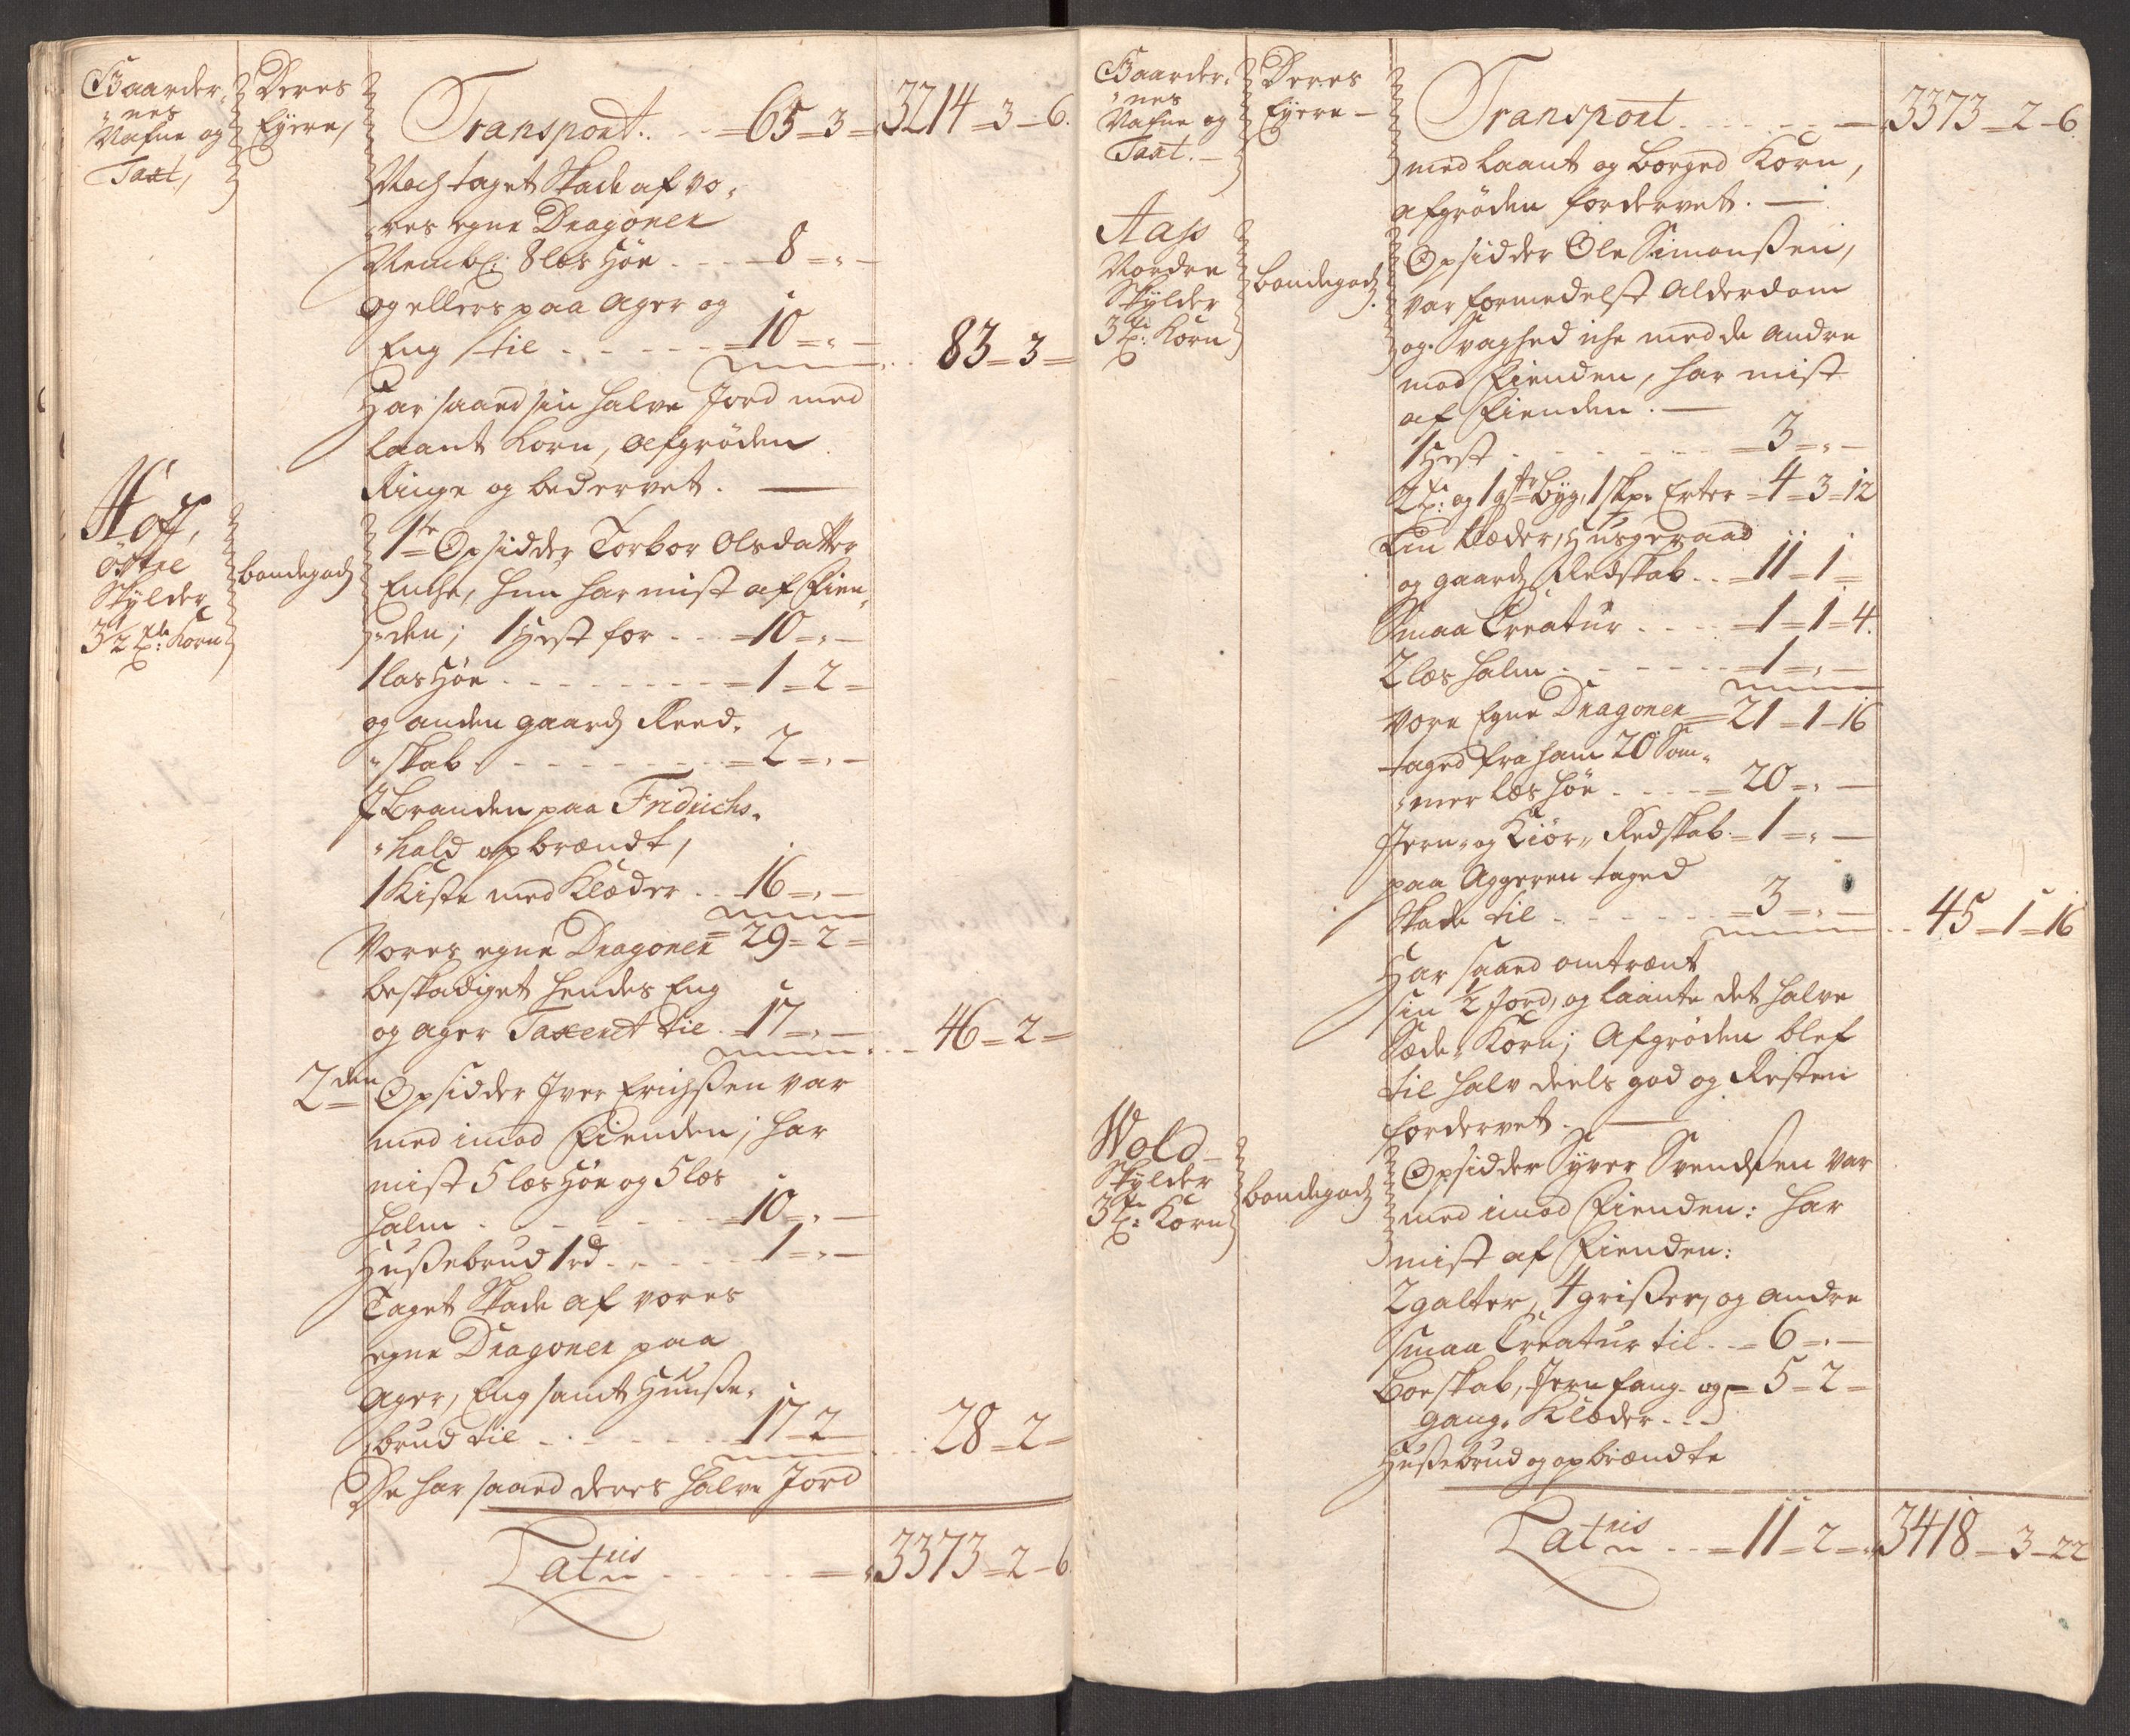 Gaarder,
"nes
Nafne og
Taxt,
Deres
Eyere,
Transport. - - 65 = 3 = 3214 = 3 = 6.
Noch taget Skade af vo,
"res egne Dragoner
Nembl: 8 læs Høe - - - 8 = " -
og ellers paa Ager og
Eng til - - - - - 10 = " - - - 83 = 3 =
Har saaed sin halve Jord med
laant Korn, Afgrøden
Ringe og bedervet. -
Hoff,
østre
Skylder
3½ : Korn
bondegods
1te Opsidder Torbor Olsdatter
Enche, hun har mist af Fien,
"den; 1 Hest for - - - 10 = " -
1 las Høe - - - - - 1 = 2 =
og anden gaards Reed,
"skab - - - - - 2 = " -
J Branden paa Fridrichs,
"hald opbrændt,
1 Kiste med Klæder - - 16 = " -
Vores egne Dragoner = 29 = 2 =
beskadiget hendes Eng
og ager Taxeret til - 17 = " - - - 46 = 2 =
2den Opsidder Iver Erichsen var
med imod Fienden; har
mist 5 læs Høe og 5 læs
halm - - - - - 10 = " -
Hussebrud 1 rd - - - - 1 = " -
Taget Skade af vores
egne Dragoner paa
Ager, Eng samt Huusse,
"brud til - - - - - 17 = 2 - - - 28 = 2 =
De har saaed deres halve Jord
Latris - - - - - 3373 = 2 - 6.
Gaarder,
"nes
Nafne og
Taxt. -
Deres
Eyere -
Transport - - - - - 3373 = 2 - 6.
med laant og borged Korn,
afgrøden fordervet. -
Aass
Nordre
Skylder
3 : Korn
bondegods.
Opsidder Ole Simonssen,
var formedelst Alderdom
og Svaghed iche med de andre
mod Fienden, har mist
af Fienden. -
1 Hest - - - - - 3 = " -
2 : og 1 qtr Byg, 1 skp: Erter = 4 = 3 = 12
Klæder, Husgeraad
og gaards Redskab - - 11 = 1 =
Smaa Creatur - - - - 1 = 1 = 4.
2 læs halm - - - - - 1 = " -
Vore Egne Dragoner = 21 = 1 - 16
taged fra ham 20 Som,
"mer læs høe - - - = 20 = " -
Jern- og Kiør,, Redskab. = 1 = " -
paa Aggeren taged
Skade til - - - - - 3 = " - - - 45 = 1 = 16
Har saaed omtrænt
sin ½ Jord, og laante det halve
Sæde, Korn; Afgrøden blef
til halv deels god og Resten
fordervet. -
Wold -
Skylder
3 : Korn
bondegods
Opsidder Syver Svendsen var
med imod Fienden: har
mist af Fienden:
2 galter, 4 grisser, og andre
smaa Creatur til - - = 6 = " -
Boeskab, Jernfang- og = 5 = 2 -
gang, Klæder - - -
Hussebrud og opbrændte
Latris - - = 11 = 2 = 3418 = 3 = 22